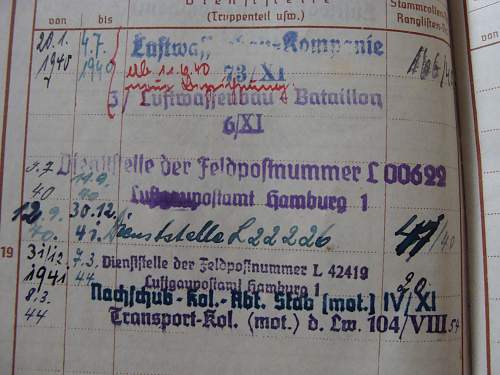 Dienststelle
(Truppenteil usw.)
Stammrollen
Ranglisten
von bis
20.1. 4.7.
1940 1940
Luftwaffenbau-Kompanie
73/XI
ab 11.9.40
3./ Luftwaffenbau Bataillon
6/XI
Dienststelle der Feldpostnummer L 00622
40 11.9.
40
Luftgaupostamt Hamburg 1
12.9. 30.12.
40. 41.
Dienststelle L 22226
47/40
19 31/12 7.3.
1941 44
Dienststelle der Feldpostnummer L 42419
Luftgaupostamt Hamburg 1
8.3.
44
Nachschub-Kol.-Abt. Stab (mot.) IV/XI
Transport-Kol. (mot.) d. Lw. 104/VIII
von